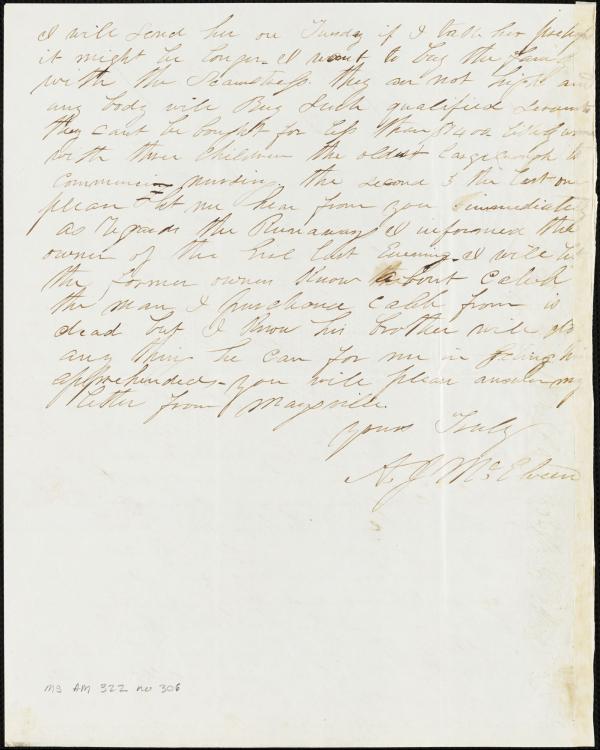 I will send her on Tuesday if I take her perhaps
it might be longer. I want to buy the family
with the Seamstress they are not high and
any body will Buy such qualified servants
they cant be bought for less than
with three children the oldest large enough to
commence nursing the second 3 the last one
please let me hear from you immediately
as regards the Runaways I informed the
owner of the last Evening. I will let
the former owner Know about Caleb
the man I purchased Caleb from is
dead but I Know his brother will do
any thing he can for me in getting him
apprehended. you will please answer my
letter from Maysville.
Yours Truly
A. J. McElveen
MS AM 322 no 306